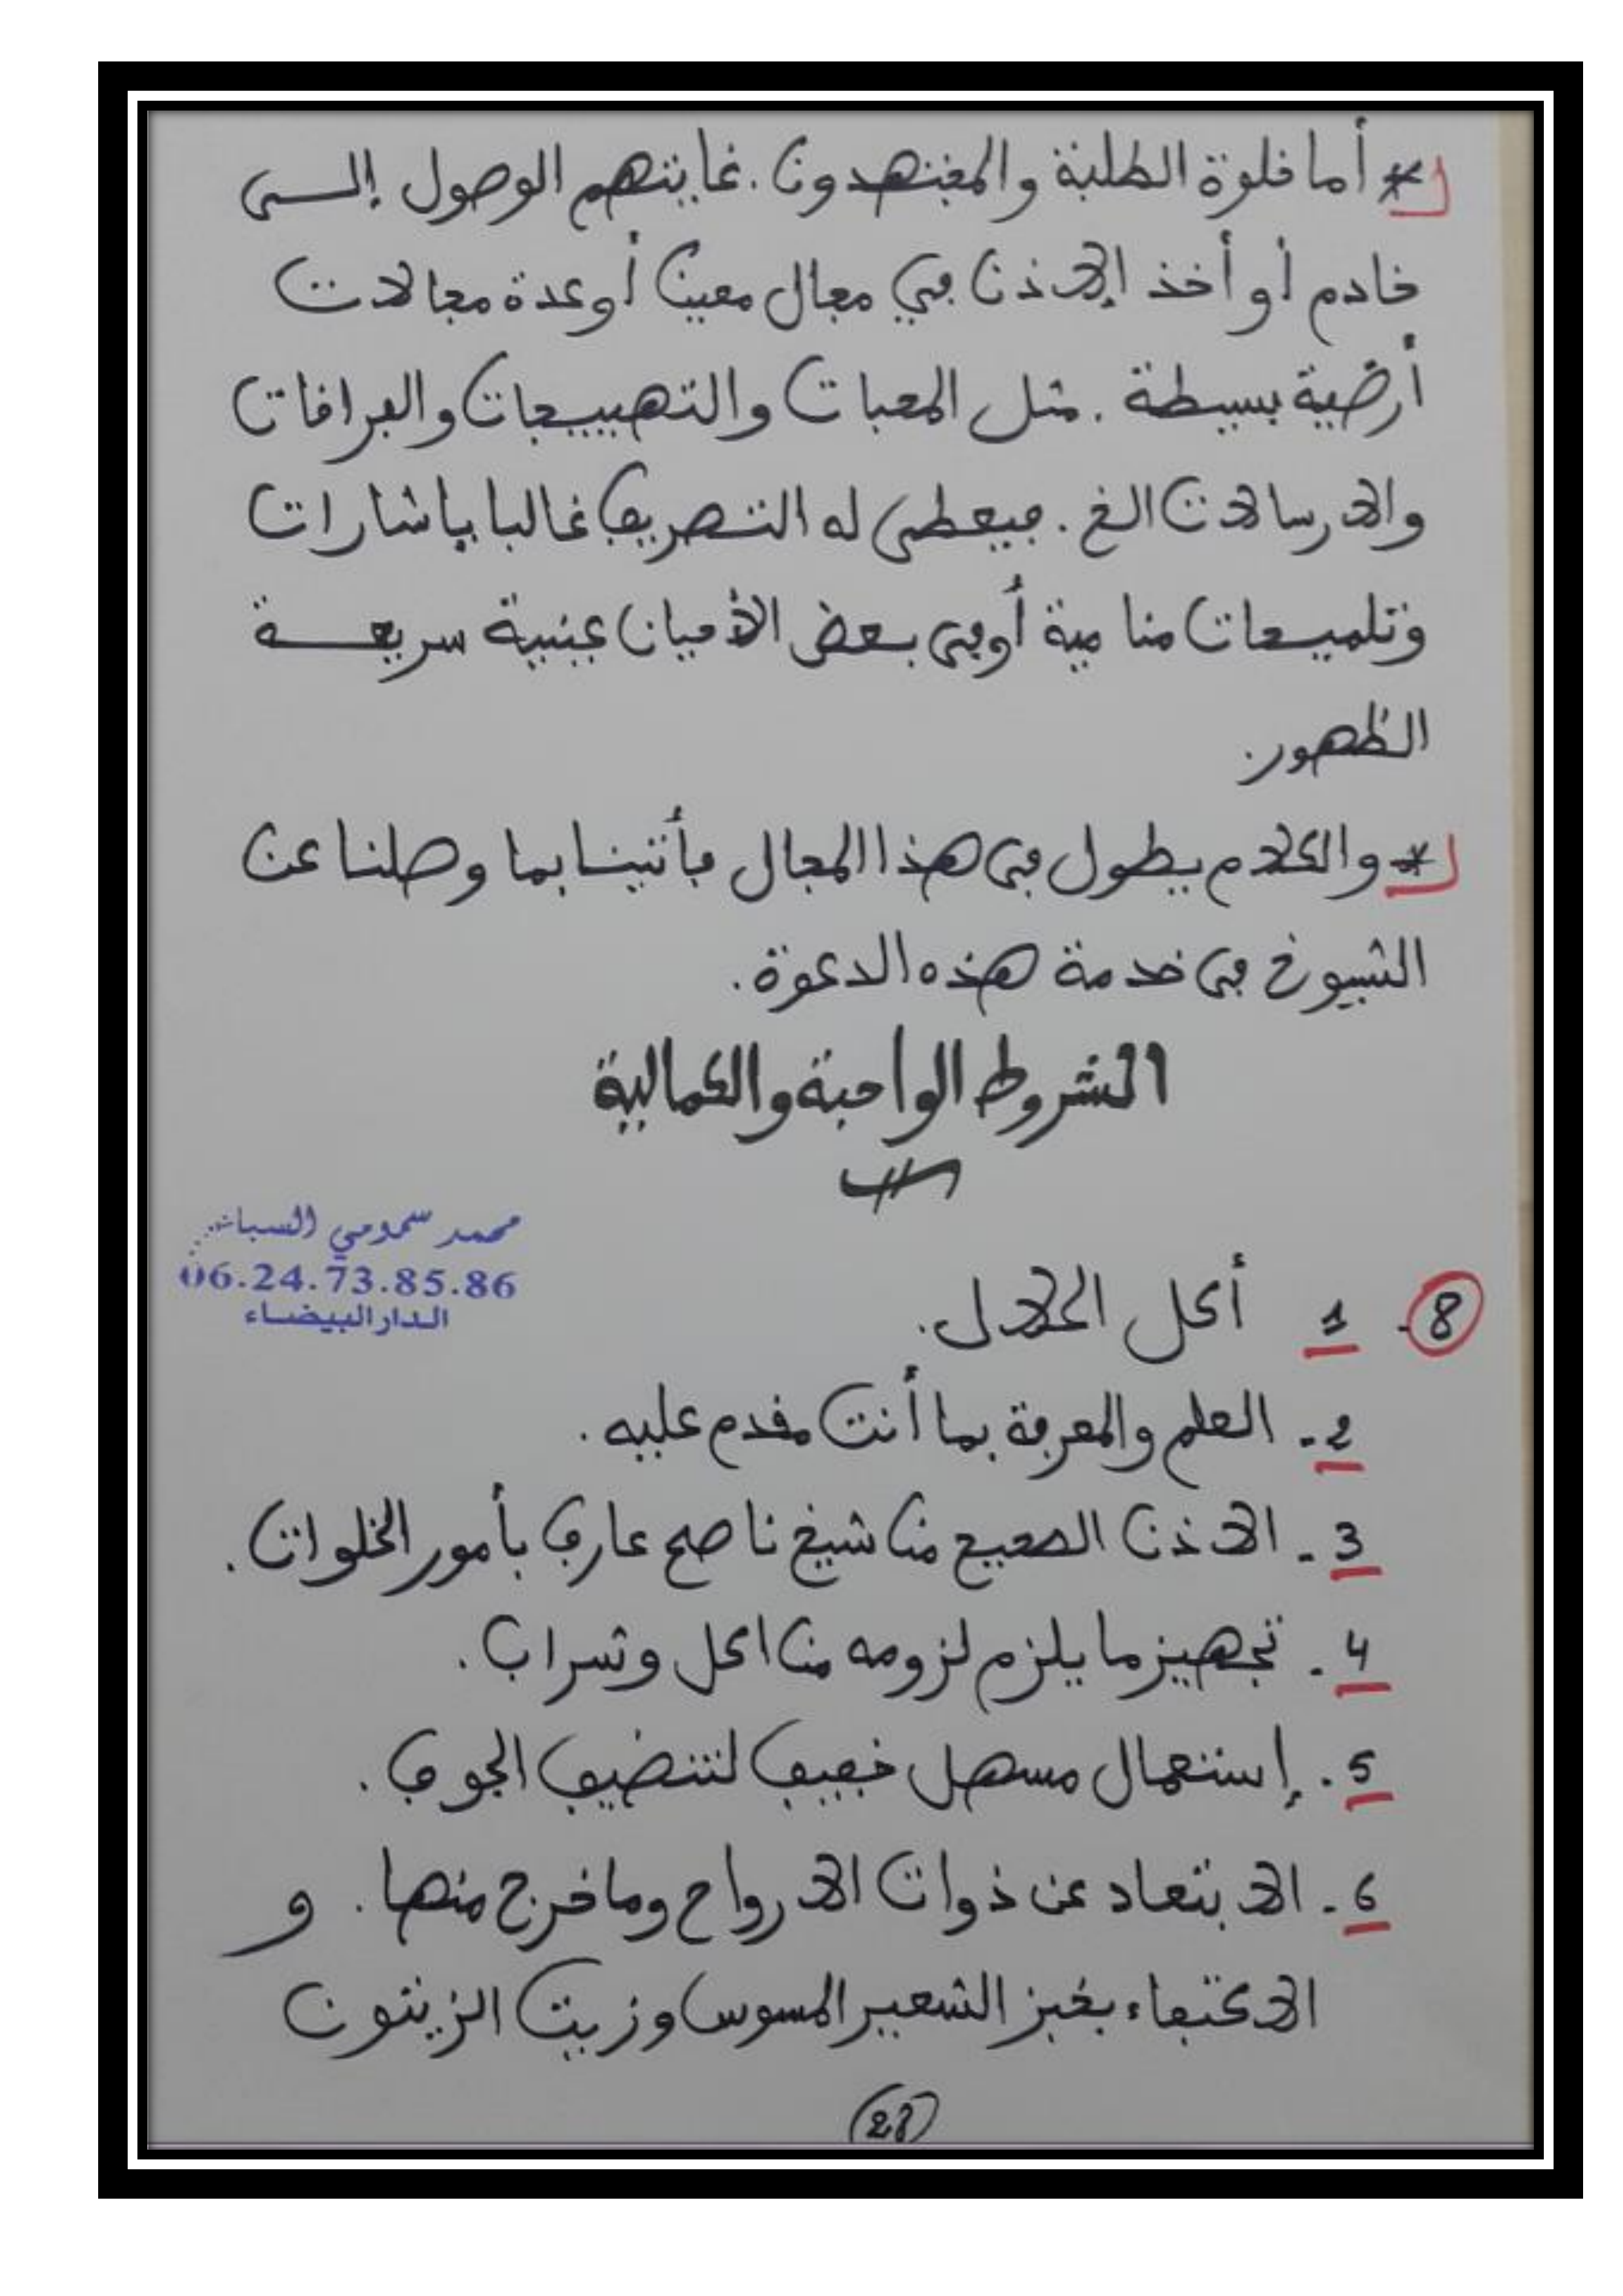 * أما خلوة الطلبة والمجتهدون. غايتهم الوصول إلـــى
خادم أو أخذ الإذن في مجال معين أو عدة مجالات
أرضية بسيطة. مثل المحبات والتهييجات والفراقات
والارسالات الخ. فيعطى له التصريف غالبا باشارات
وتلميحات منامية أوفى بعض الأحيان عينية سريعـــة
الظهور.
* والكلام يطول فى هذا المجال فأتينا بما وصلنا عن
الشيوخ فى خدمة هذه الدعوة.
الشروط الواجبة والكمالية
محمد سمومي
06.24.73.85.86
الدار البيضاء
8 - 1 أكل الحلال.
2 - العلم والمعرفة بما أنت مقدم عليه.
3 - الاذن الصحيح من شيخ ناصح عارف بأمور الخلوات.
4 - تجهيز ما يلزم لزومه من اكل وشراب.
5 - إستعمال مسهل خفيف لتنضيف الجوف.
6 - الابتعاد عن ذوات الارواح وما خرج منها. و
الاكتفاء بخبز الشعير المسوس وزيت الزيتون
28